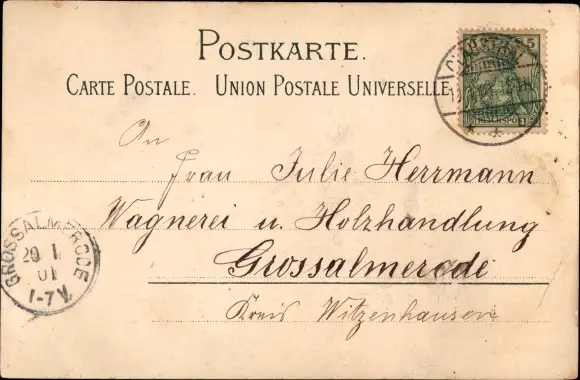 POSTKARTE.
CARTE POSTALE. UNION POSTALE UNIVERSELLE
5
REICHSPOST
An
Frau Julie Herrmann
Wagnerei u. Holzhandlung
Grossalmerode
Kreis Witzenhausen
GROSSALMERODE
20 1
01
1-7V.